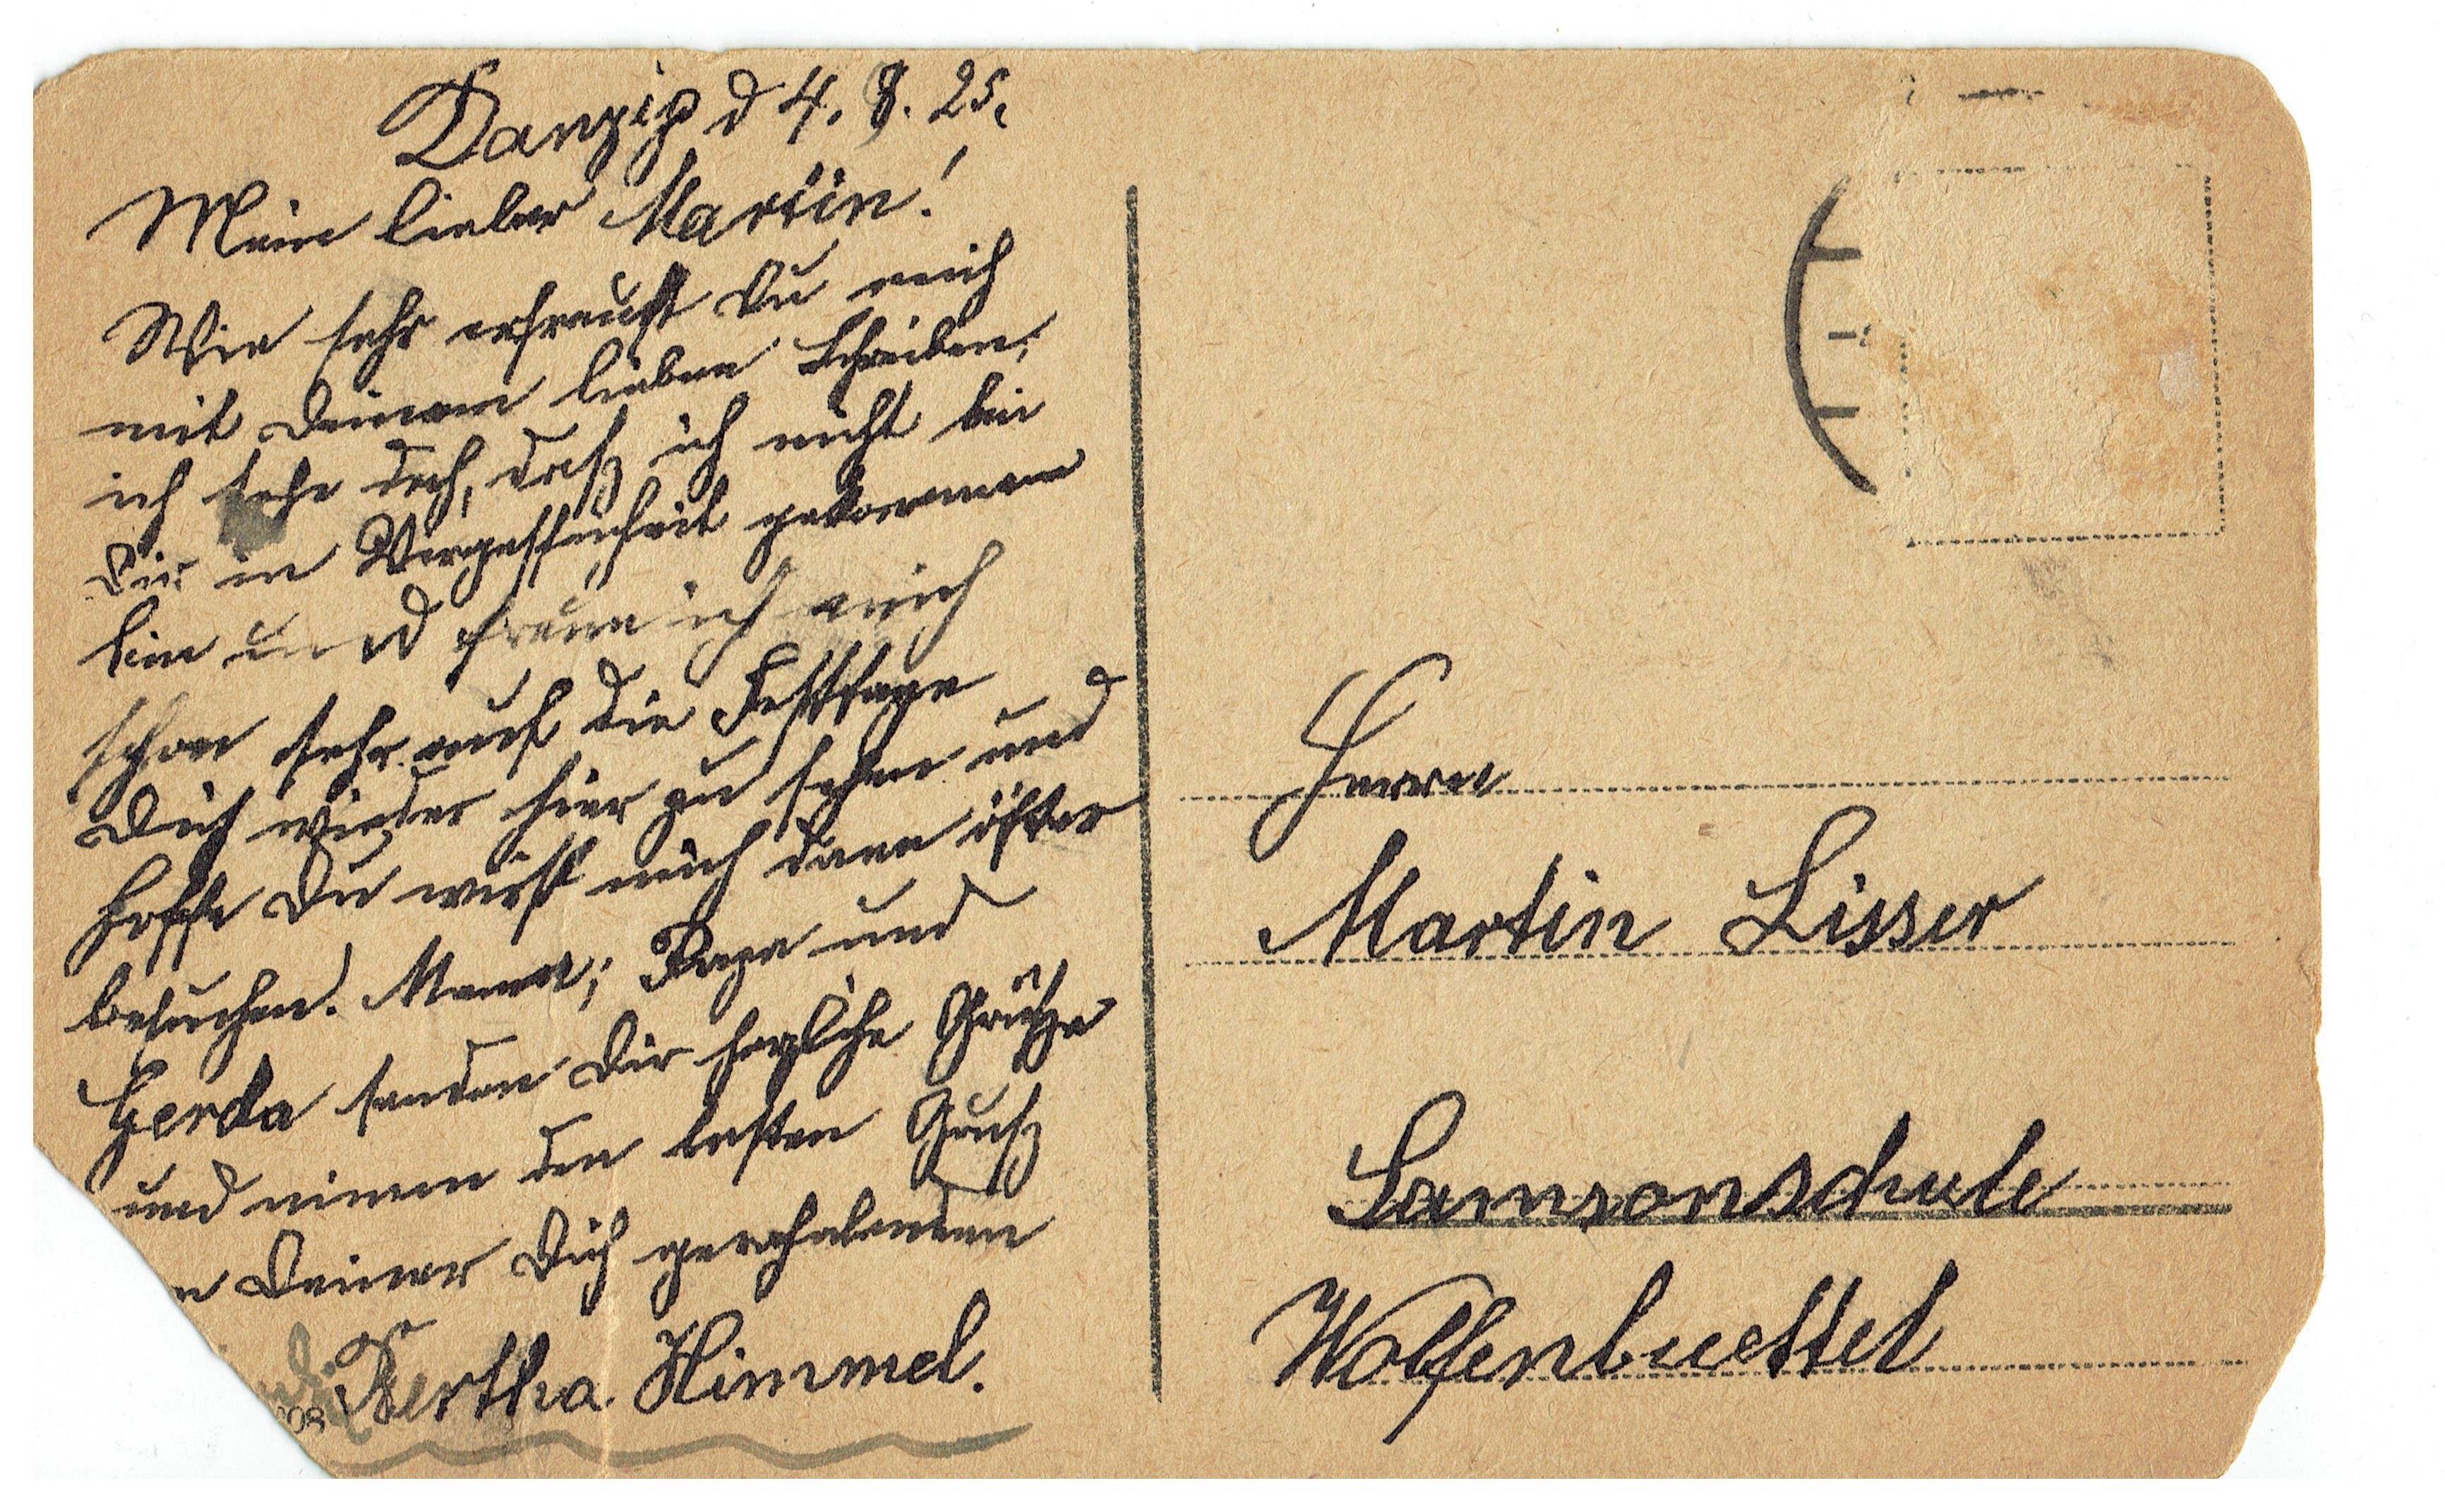 Danzig d 4. 8. 25.
Mein lieber Martin!
Wie sehr erfreust Du mich
mit Deinem lieben Schreiben,
ich sehe doch, daß ich nicht bei
Dir in Vergessenheit gekommen
bin und freue ich mich
schon sehr auf die Festtage
Dich wieder hier zu sehen und
hoffe Du wirst mich dann öfter
besuchen. Mama; Papa und
Gerda senden Dir herzliche Grüße
und nimm den besten Gruß
Deiner Dich
Bertha Himmel.
Herrn
Martin Lisser
Samsonschule
Wolfenbuettel